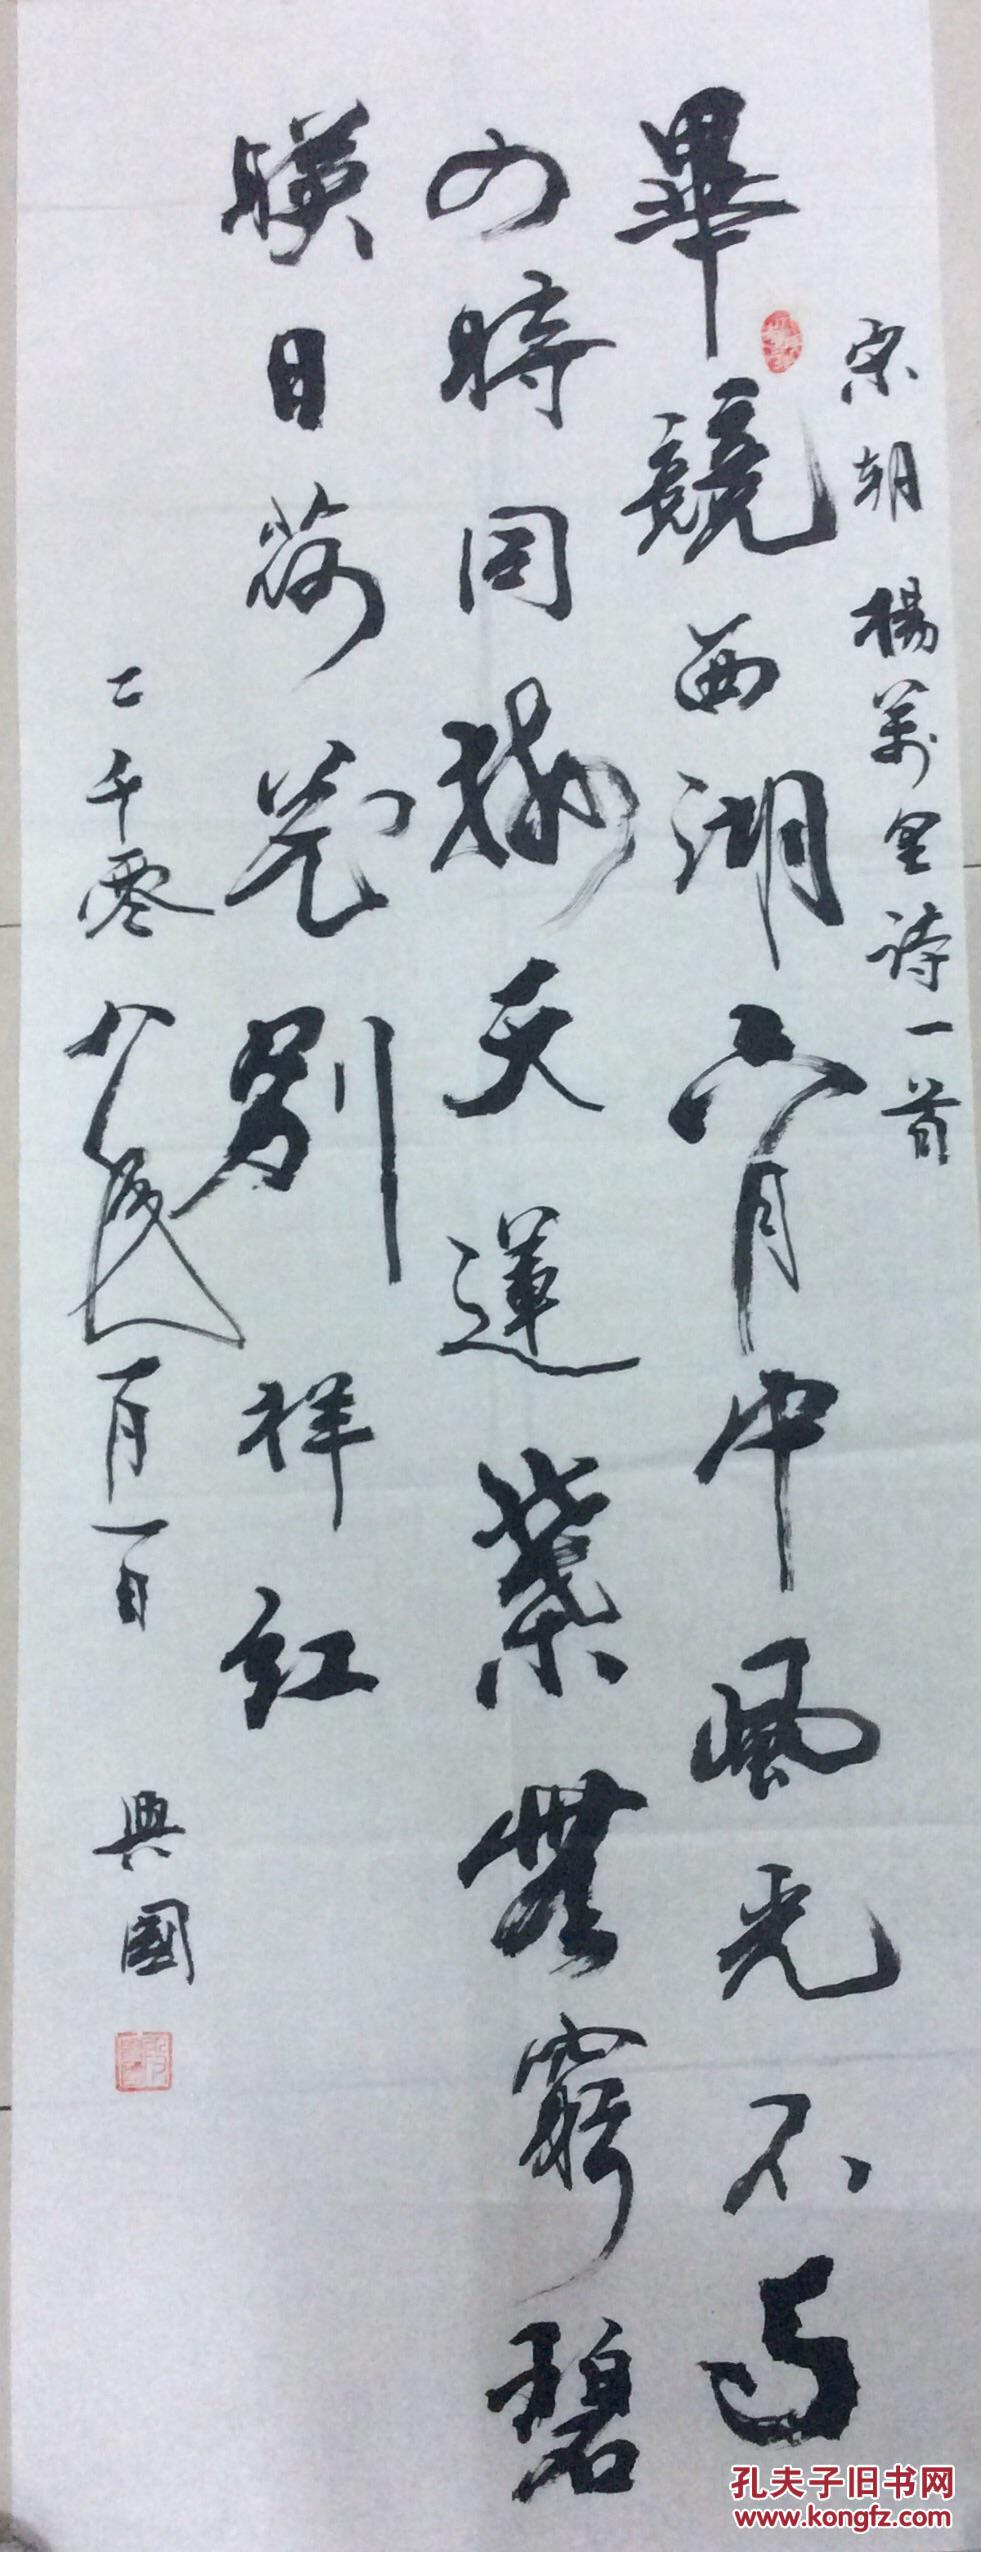 宋朝楊萬里詩一首
畢競西湖六月中風光不与
四時同接天蓮葉無窮碧
暎日荷花別祥红
二千零八年一月一日
興國
孔夫子旧书网
www.kongfz.com